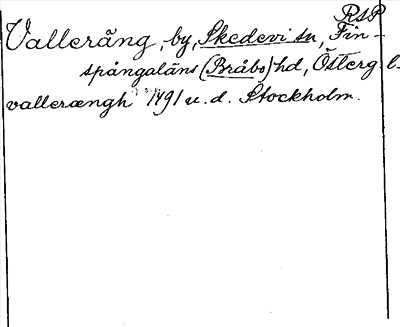 RSP
Valleräng, by, Skedevi sn, Fin-
spångaläns (Bråbo) hd, Österg. l.
vallerængh 1491 u. d. Stockholm.